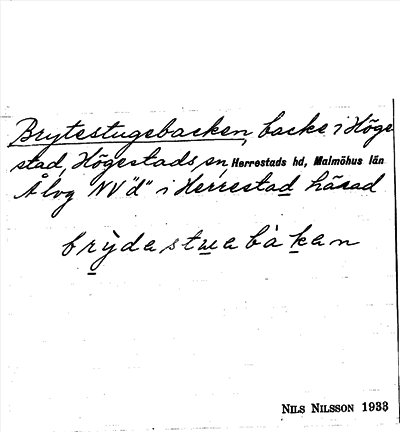 Brytestugebacken, backe i Höge
stad, Högestads sn, Herrestads hd, Malmöhus län
Ålvg NV"d" i Herrestad härad
brỳdastwabàkan
NILS NILSSON 1933